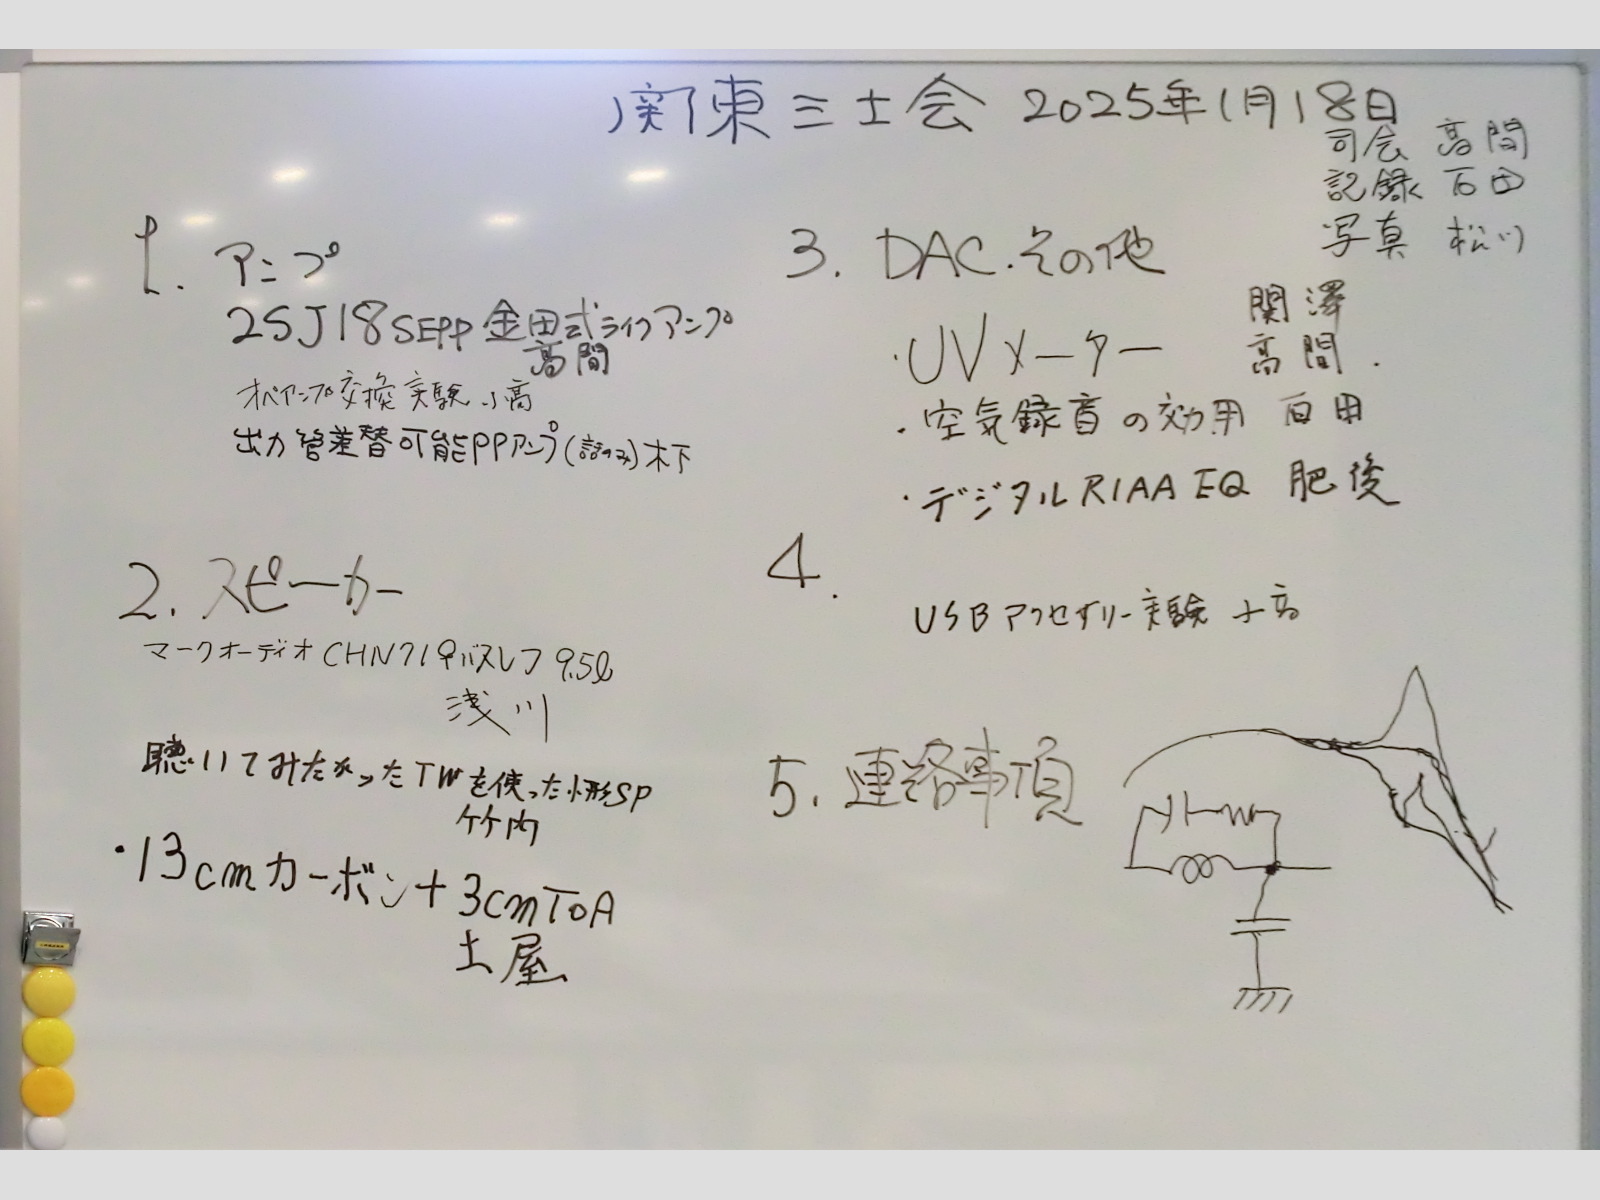 関東三土会 2025年1月18日
司会 高間
記録 百田
写真 松川
1. アンプ
2SJ18SEPP 金田式ライクアンプ
高間
オペアンプ交換実験 小高
出力管差替可能PPアンプ(話のみ)木下
2. スピーカー
マークオーディオCHN719バスレフ 9.5ℓ
浅川
聴いてみたかったTWを使った小形SP
竹内
・13cmカーボン+3cmTOA
土屋
3. DAC.その他
関澤
・UVメーター 高間.
・空気録音の効用 百田
・デジタルRIAA EQ 肥後
4.
USBアクセサリー実験 小高
5. 連絡事項